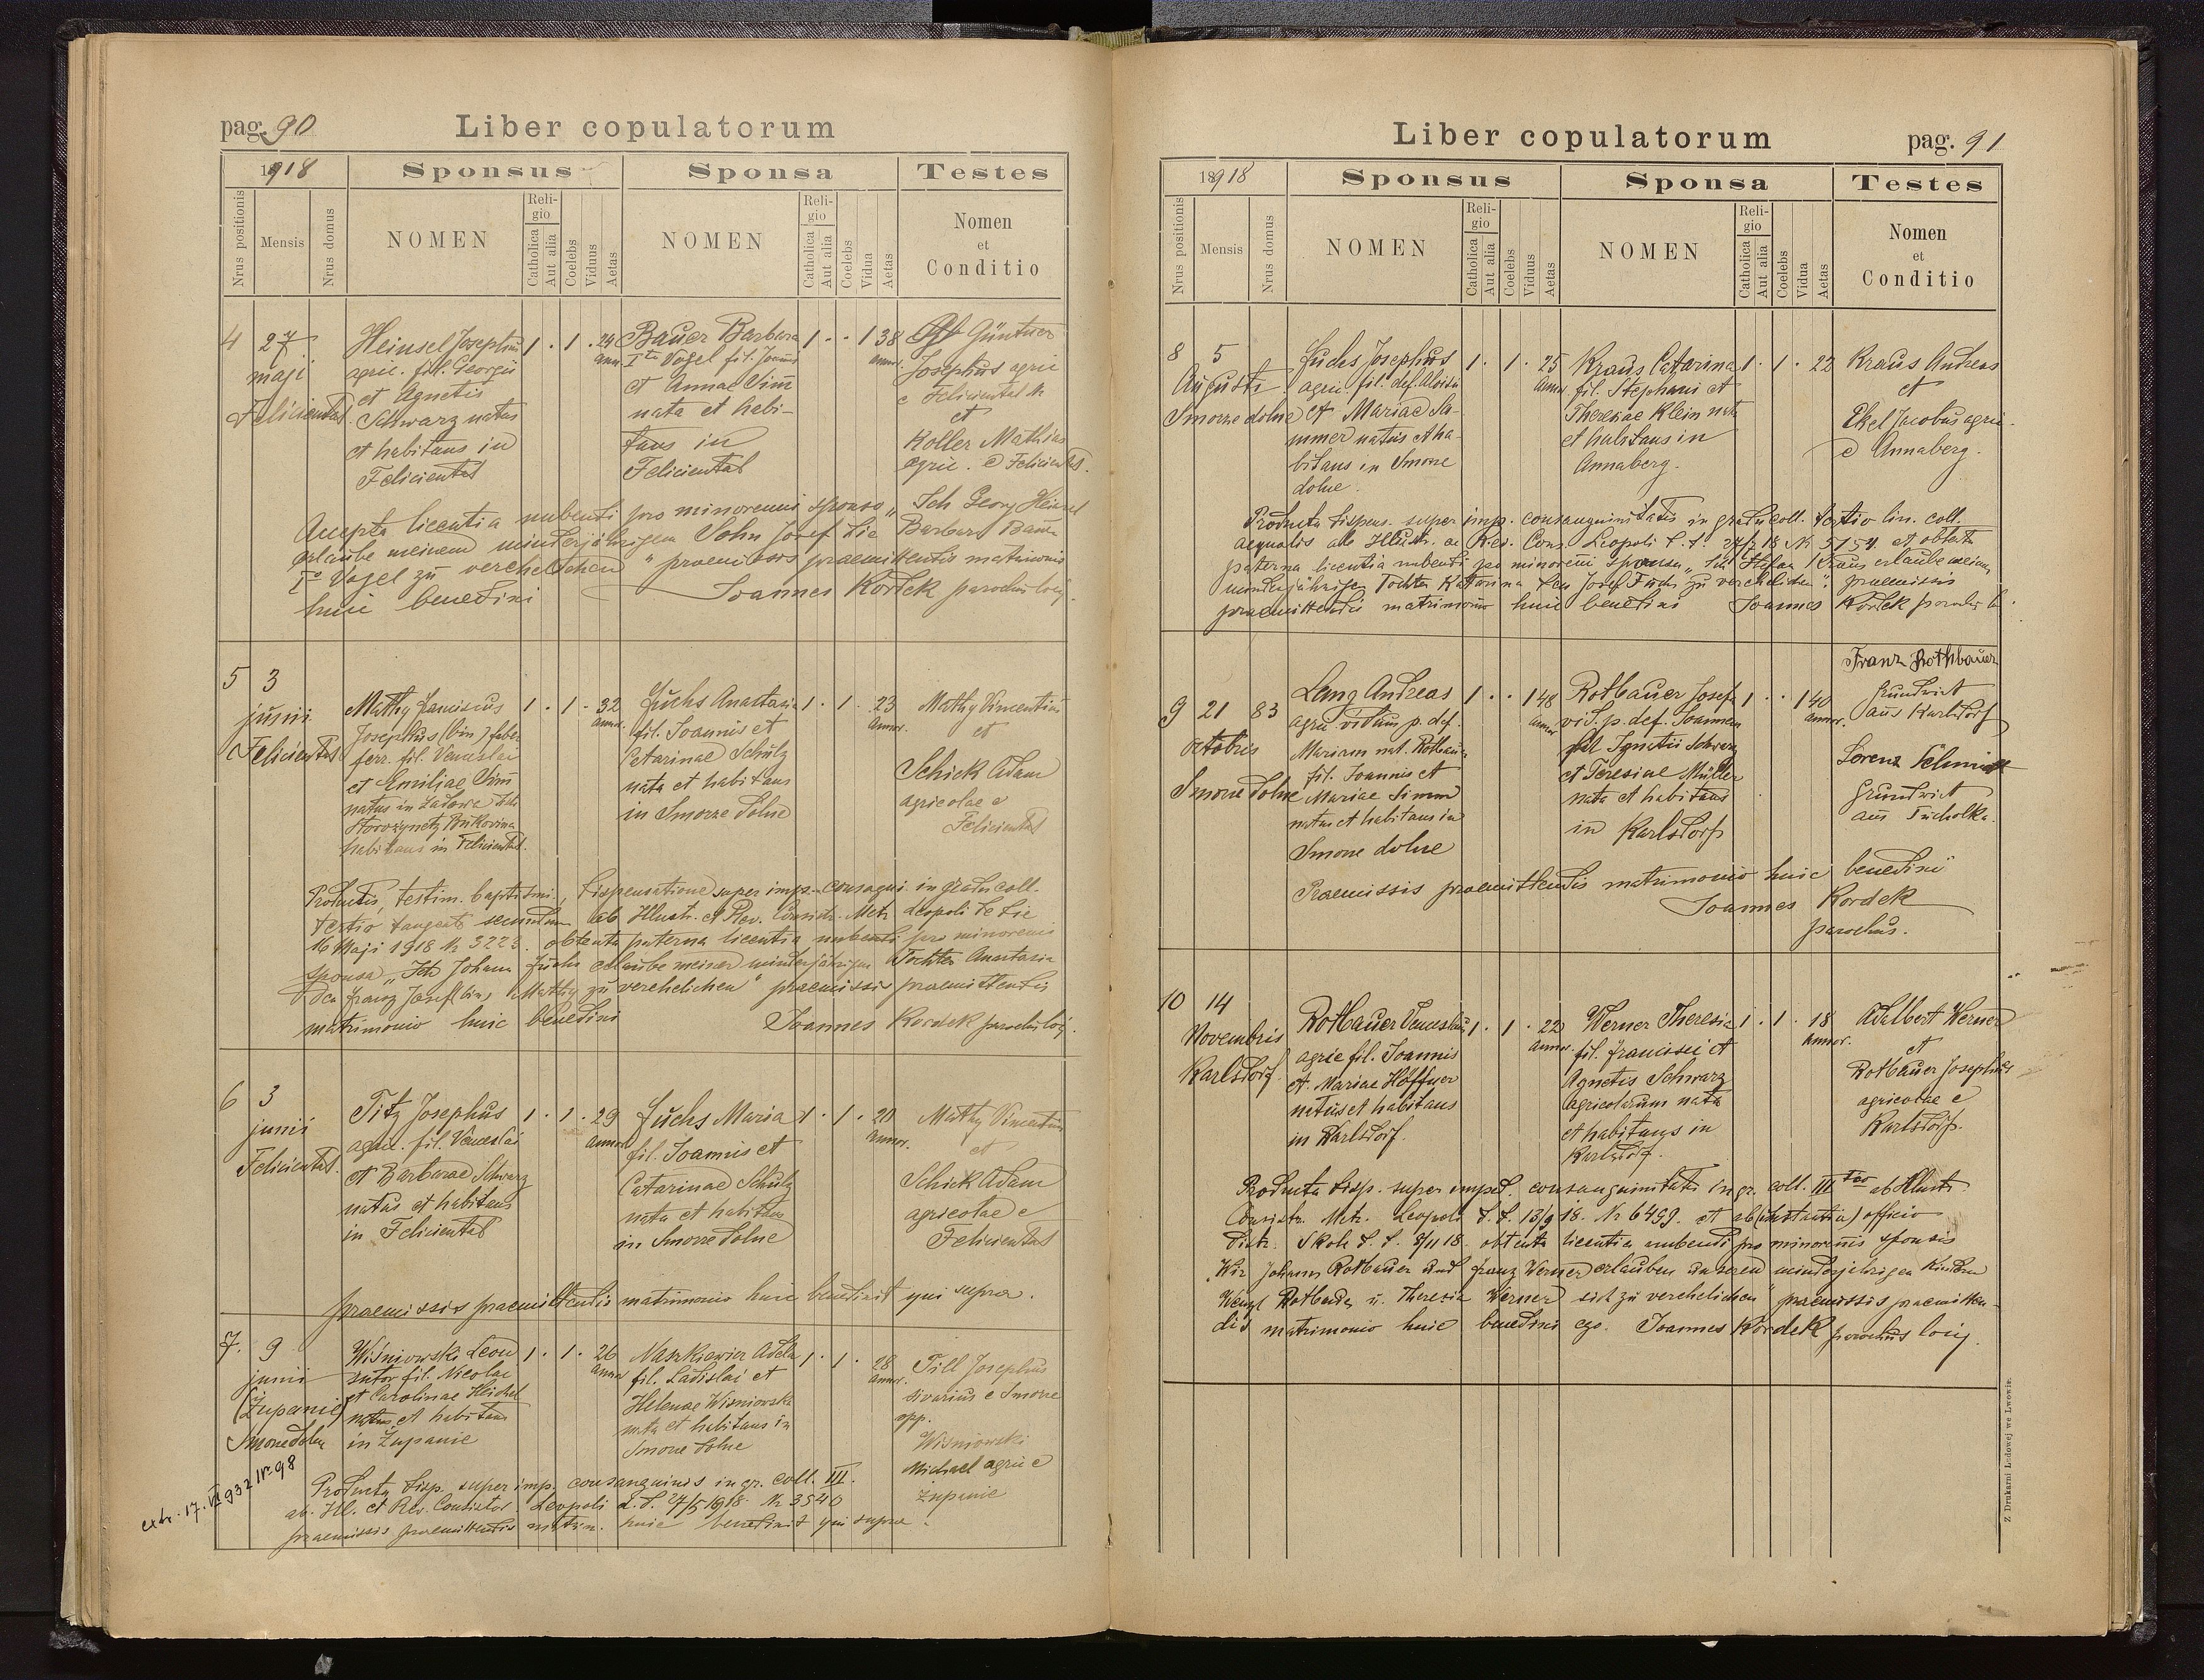 pag. 90
Liber copulatorum
1918
Sponsus
Sponsa
Testes
Nrus positionis
Mensis
Nrus domus
NOMEN
Religio
Catholica
Aut alia
Coelebs
Viduus
Aetas
NOMEN
Religio
Catholica
Aut alia
Coelebs
Vidua
Aetas
Nomen
et
Conditio
4 27
maji
Felicienthal
Heinsel Josephus
agric. fil. Georgii
et Agnetis
Schwarz natus
et habitans in
Felicienthal
1 . 1 . 24
annor.
Bauer Barbara
Ito Vogel fil. Joannis
et Annae Simm
nata et habi-
tans in
Felicienthal
1 . . 1 38
annor.
Güntner
Josephus agric
e Felicienthal
et
Koller Mathias
agric. e Felicienthal.
Accepta licentia nubendi pro minorenni sponso „Ich Georg Heinsel
erlaube meinem minderjährigen Sohn Josef die Barbara Bauer
Io Vogel zu verehelichen" praemissis praemittendis matrimonio
huic benedixi Joannes Kordek parochus loci.
5 3
junii
Felicienthal
Mathy Franciscus
Josephus (bin.) faber
ferr. fil. Venceslai
et Emiliae Simm
natus in Zadowa
Storozynetz Bukowina
habitans in Felicienthal.
1 . 1 . 32
annor.
Fuchs Anastasia
fil. Joannis et
Catarinae Schulz
nata et habitans
in Smorze dolne
1 . 1 . 23
Annor.
Mathy Vincentius
et
Schick Adam
agricolae e
Felicienthal
Productis, testim. baptismi, dispensatione super imp. consangui. in gradu coll.
tertio tangente secundum ab Illustr. et Rev. Consistr. Metr. Leopoli de die
16 Maji 1918 Nr 3223. obtenta paterna licentia nubendi pro minorenni
sponsa „Ich Johann Fuchs erlaube meiner minderjährigen Tochter Anastasia
den Franz Josef (bin) Mathy zu verehelichen" praemissis praemittendis
matrimonio huic benedixi Joannes Kordek parochus loci.
6 3
junii
Felicienthal.
Titz Josephus
agric. fil. Venceslai
et Barbarae Schwarz
natus et habitans
in Felicienthal
1 . 1 . 29
annor.
Fuchs Maria
fil. Joannis et
Catarinae Schulz
nata et habitans
in Smorze dolne
1 . 1 . 20
Annor.
Mathy Vincentius
et
Schick Adam
agricolae e
Felicienthal
praemissis praemittendis matrimonio huic benedixit qui supra.
7. 9
junii
(Żupanie)
Smorze dolne
Wiśniowski Leon
sutor fil. Nicolai
et Carolinae Heichel
natus et habitans
in Żupanie
1 . 1 . 26
annor
Maszkiewicz Adela
fil. Ladislai et
Helenae Wiśniowska
nata et habitans in
Smorze dolne
1 . 1 . 28
Annor.
Till Josephus
silvarius e Smorze
opp.
Wiśniowski
Michael agric e
Żupanie
extr. 17. VI 932 Nr 98
Producta disp. super imp. consanguinis in gr. coll. III.
ab. Ill. et Rev. Consistor Leopoli d.d. 27/5 1918 Nr 3540
praemissis praemittendis matrim. huic benedixit qui supra.
Liber copulatorum
pag. 91
1918
Sponsus
Sponsa
Testes
Nrus positionis
Mensis
Nrus domus
NOMEN
Religio
Catholica
Aut alia
Coelebs
Viduus
Aetas
NOMEN
Religio
Catholica
Aut alia
Coelebs
Vidua
Aetas
Nomen
et
Conditio
8 5
Augusti
Smorze dolne
Fuchs Josephus
agric. fil. def. Aloisii
et Mariae Sa-
mmer natus et ha-
bitans in Smorze
dolne.
1 . 1 . 25
Annor
Kraus Catarina
fil. Stephani et
Theresiae Klein nata
et habitans in
Annaberg.
1 . 1 . 22
Kraus Andreas
et
Ekel Jacobus agric.
e Annaberg.
Producta dispens. super imp. consanguinitatis in gradu coll. tertio lin. coll.
aequalis ab Illustr. ac Rev. Cons. Leopoli d.d. 27/7 18 Nr 5154. et obtenta
paterna licentia nubendi pro minorenni sponsa „Ich Stefan Kraus erlaube meiner
minderjährigen Tochter Katarina den Josef Fuchs zu verehelichen". praemissis
praemittendis matrimonio huic benedixi Joannes Kordek parochus l.
9 21 83
octobris
Smorze dolne
Lang Andreas
agric viduus p. def.
Mariam nat. Rotbauer
fil. Joannis et
Mariae Simm
natus et habitans in
Smorze dolne
1 . . 1 48
annor
Rotbauer Josefa
vid. p. def. Joannem
fil Ignatii Schwarz
et Teresiae Müller
nata et habitans
in Karlsdorf
1 . . 1 40
annor.
Franz Rothbauer
Grundwirt
aus Karlsdorf
Lorenz Schmidt
Grundwirt
aus Tucholka.
Praemissis praemittendis matrimonio huic benedixi
Joannes Kordek
parochus.
10 14
Novembris
Karlsdorf
Rotbauer Venceslaus
agric fil. Joannis
et Mariae Höffner
natus et habitans
in Karlsdorf.
1 . 1 . 22
annor.
Werner Theresia
fil. Francisci et
Agnetis Schwarz
agricolarum nata
et habitans in
Karlsdorf.
1 . 1 . 18
Annor.
Adelbert Werner
et
Rotbauer Josephus
agricolae e
Karlsdorf.
Producta disp. super imped. consanguinitatis in gr. coll. III tio ab Illustr.
Consistr. Metr. Leopoli d.d. 13/9 18. Nr 6499. et ab (instantia) officio
distr. Skole d.d. 8/11 18. obtenta licentia nubendi pro minorennis sponsis
„Wir Johann Rotbauer und Franz Werner erlauben unseren minderjährigen Kindern
Wenzl Rotbauer u. Theresia Werner sich zu verehelichen" praemissis praemitten-
dis matrimonio huic benedixi ego. Joannes Kordek parochus loci.
Z Drukarni Ludowej we Lwowie.